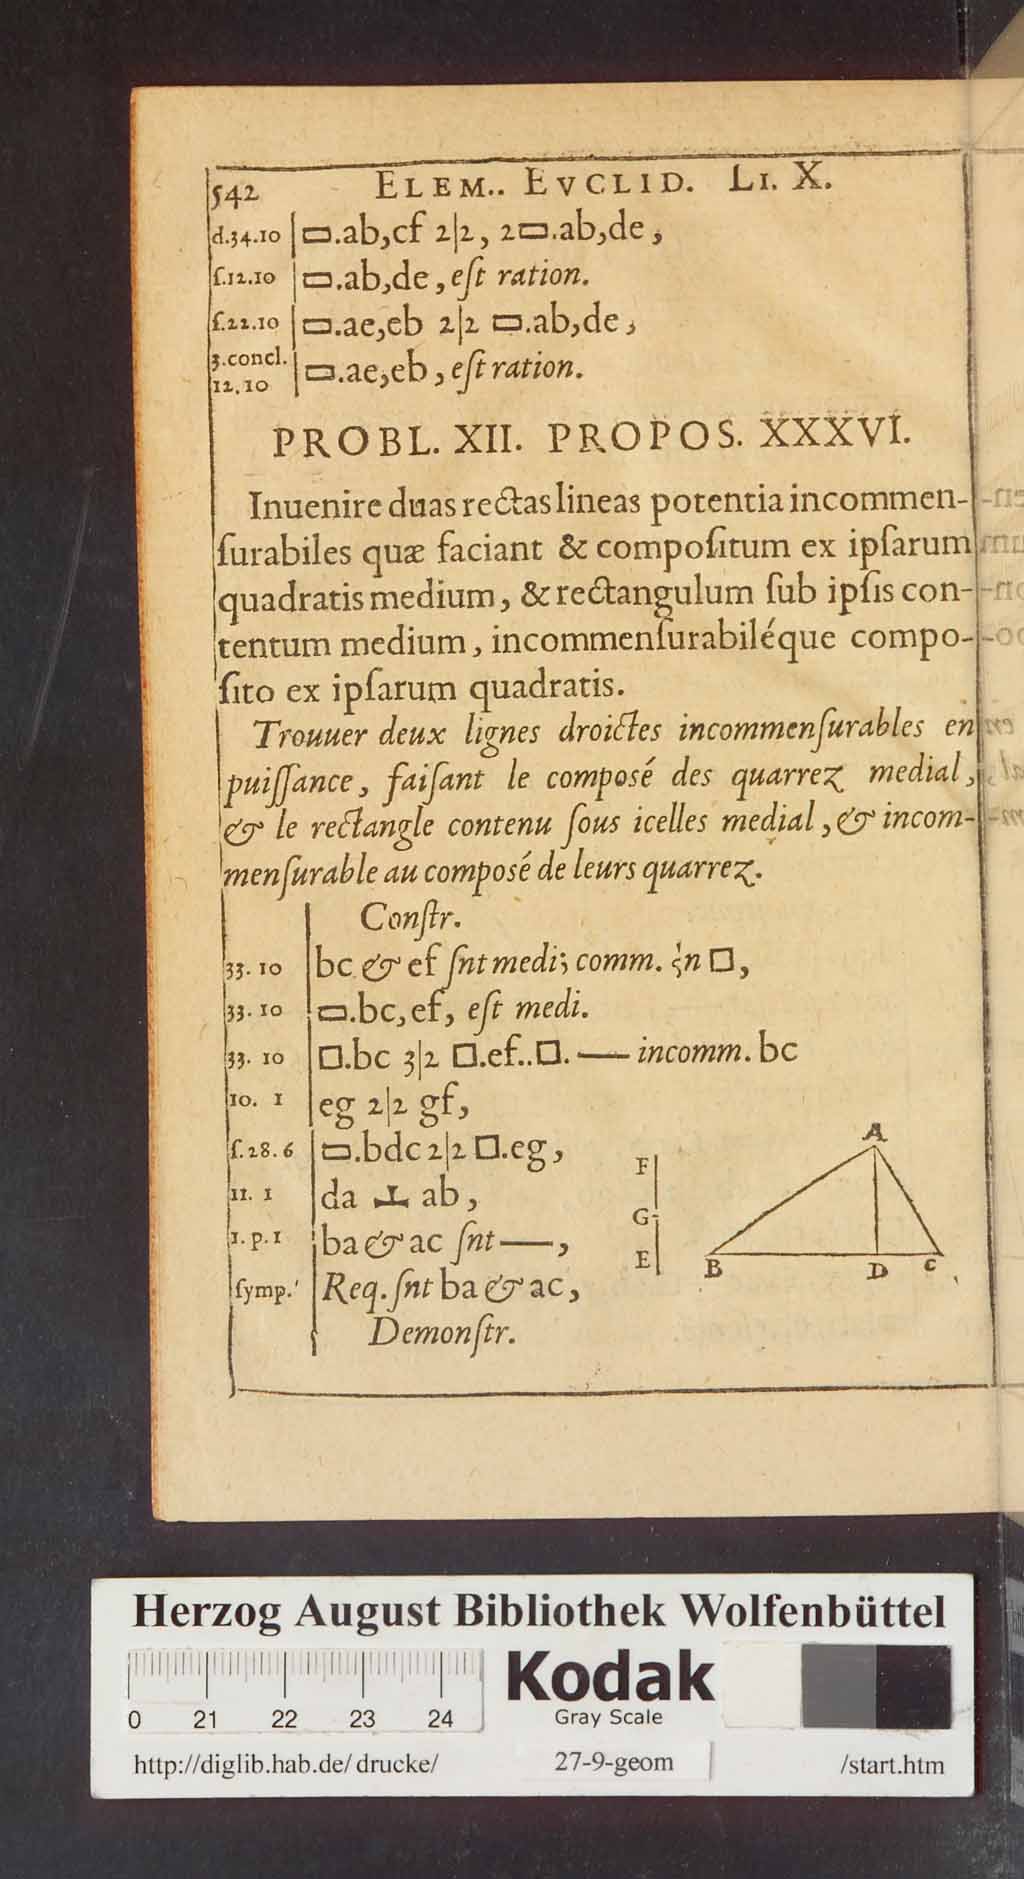 542 ELEM.. EVCLID. LI. X.
d.34.10 ▭.ab,cf 2|2, 2▭.ab,de,
ſ.12.10 ▭.ab,de, eſt ration.
ſ.22.10 ▭.ae,eb 2|2 ▭.ab,de,
3.concl.
12.10 ▭.ae,eb, eſt ration.
PROBL. XII. PROPOS. XXXVI.
Inuenire duas rectas lineas potentia incommen-
ſurabiles quæ faciant & compoſitum ex ipſarum
quadratis medium, & rectangulum ſub ipſis con-
tentum medium, incommenſurabiléque compo-
ſito ex ipſarum quadratis.
Trouuer deux lignes droictes incommenſurables en
puiſſance, faiſant le composé des quarrez medial,
& le rectangle contenu ſous icelles medial, & incom-
menſurable au composé de leurs quarrez.
Conſtr.
33. 10 bc & ef ſnt medi; comm. ꞔn □,
33. 10 ▭.bc,ef, eſt medi.
33. 10 □.bc 3|2 □.ef..□. — incomm. bc
10. 1 eg 2|2 gf,
ſ.28.6 ▭.bdc 2|2 □.eg,
11. 1 da ⊥ ab,
1.p.1 ba & ac ſnt —,
ſymp. Req. ſnt ba & ac,
Demonſtr.
F
G
E
A
B
D
C
Herzog August Bibliothek Wolfenbüttel
0 21 22 23 24
Kodak
Gray Scale
http://diglib.hab.de/drucke/ 27-9-geom /start.htm